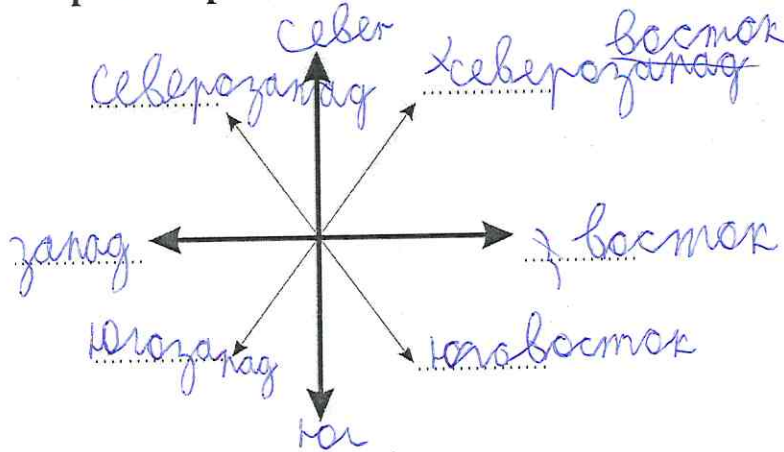 север
восток
северозапад
северозапад
запад
восток
югозапад
юговосток
юг